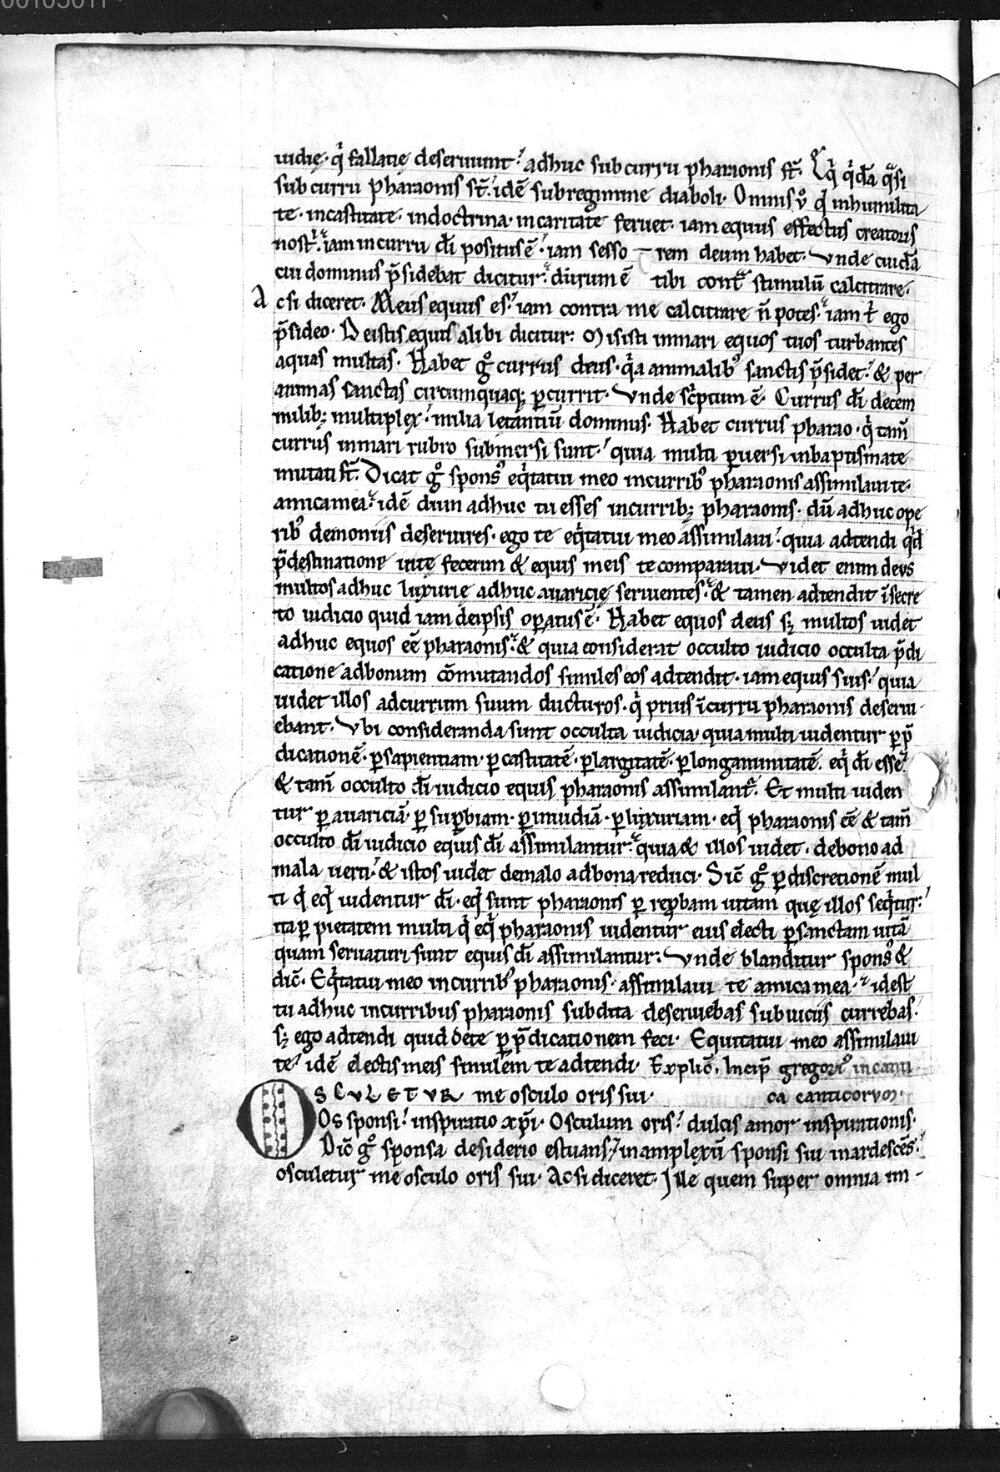 uidię· q̇ fallacię deseruiunt? adhuc sub curru pharaonis st̄. Eq̇ q̇dā q̈si
sub curru pharaonis st̄? idē sub regimine diaboli· Omnis ṽ q̇ in humilita
te· in castitate· in doctrina· in caritate feruet· iam equus effectus creatoris
nostͥ? iam in curru dī positus ē? iam sesso rem deum habet· Vnde cuidā
cui dominus p̄sidebat dicitur? durum ē tibi contͣ stimulū calcitrare·
Ac si diceret· Meus equus es? iam contra me calcitrare ñ potes? iam t̄ ego
p̄sideo· De istis equis alibi dicitur: Misisti in mari equos tuos turbantes
aquas multas· Habet g̊ currus deus· q̇a animalibꝰ sanctis p̄sidet? & per
animas sanctas circumquaq; ꝑcurrit· Vnde sc̄ptum ē· Currus dī decem
milib; multiplex? milia letantiū dominus· Habet currus pharao· q̇ tam̄
currus in mari rubro submersi sunt? quia multi ꝑuersi in baptismate
mutati st̄· Dicat g̊ sponsꝰ eq̇tatui meo in curribꝰ pharaonis assimilaui te·
amica mea? idē dum adhuc tu esses in currib; pharaonis· dū adhuc ope
ribꝰ demoniis deseruires· ego te eq̇tatui meo assimilaui? quia adtendi q̇d
p̄destinatione in te fecerim & equis meis te comparaui· Videt enim deus
multos adhuc luxurię adhuc auaricię seruientes? & tamen adtendit ī secre
to iudicio quid iam de ipsis oꝑatus ē· Habet equos deus s; multos uidet
adhuc equos eē pharaonis? & quia considerat occulto iudicio occulta p̄di
catione ad bonum cōmutandos similes eos adtendit· iam equis suis? quia
uidet illos ad currum suum ducturos· q̇ prius ī curru pharaonis deserui
ebant· Vbi consideranda sunt occulta iudicia quia multi uidentur ꝑ p̄
dicationē· ꝑ sapientiam· ꝑ castitatē· ꝑ largitatē· ꝑ longanimitatē· eq̇ dī esse?
& tam̄ occulto dī iudicio equis pharaonis assimilantͬ· Et multi uiden
tur ꝑ auariciā· ꝑ suꝑbiam· ꝑ inuidiā· ꝑ luxuriam· eq̇ pharaonis eē & tam̄
occulto dī iudicio equis dī assimilantur? quia & illos uidet· de bono ad
mala uerti? & istos uidet de malo ad bona reduci· Sic̄ g̊ ꝑ discretionē mul
ti q̇ eq̇ uidentur dī· eq̇ sunt pharaonis ꝑ reꝓbam uitam quę illos seq̇tur?
ita ꝑ pietatem multi q̇ eq̇ pharaonis uidentur eius electi ꝑ sanctam uitā
quam seruaturi sunt equis dī assimilantur: Vnde blanditur sponsꝰ &
dic̄· Eq̇tatui meo in curribꝰ pharaonis· assimilaui te amica mea·? id est
tu adhuc in curribus pharaonis subdita deseruiebas sub uiciis currebas·
s; ego adtendi quid de te ꝑ p̄dicationem feci· Equitatui meo assimilaui
te? idē electis meis similem te adtendi· Explic̄· Incip̄ gregoriꝰ in canti
OSCVLETVR me osculo oris sui· ca canticorum·
Os sponsi? inspiratio xp̄i· Osculum oris? dulcis amor inspirationis·
Dic̄ g̊ sponsa desiderio estuans? in amplexū sponsi sui inardescēs?
osculetur me osculo oris sui· Ac si diceret· Ille quem super omnia im-